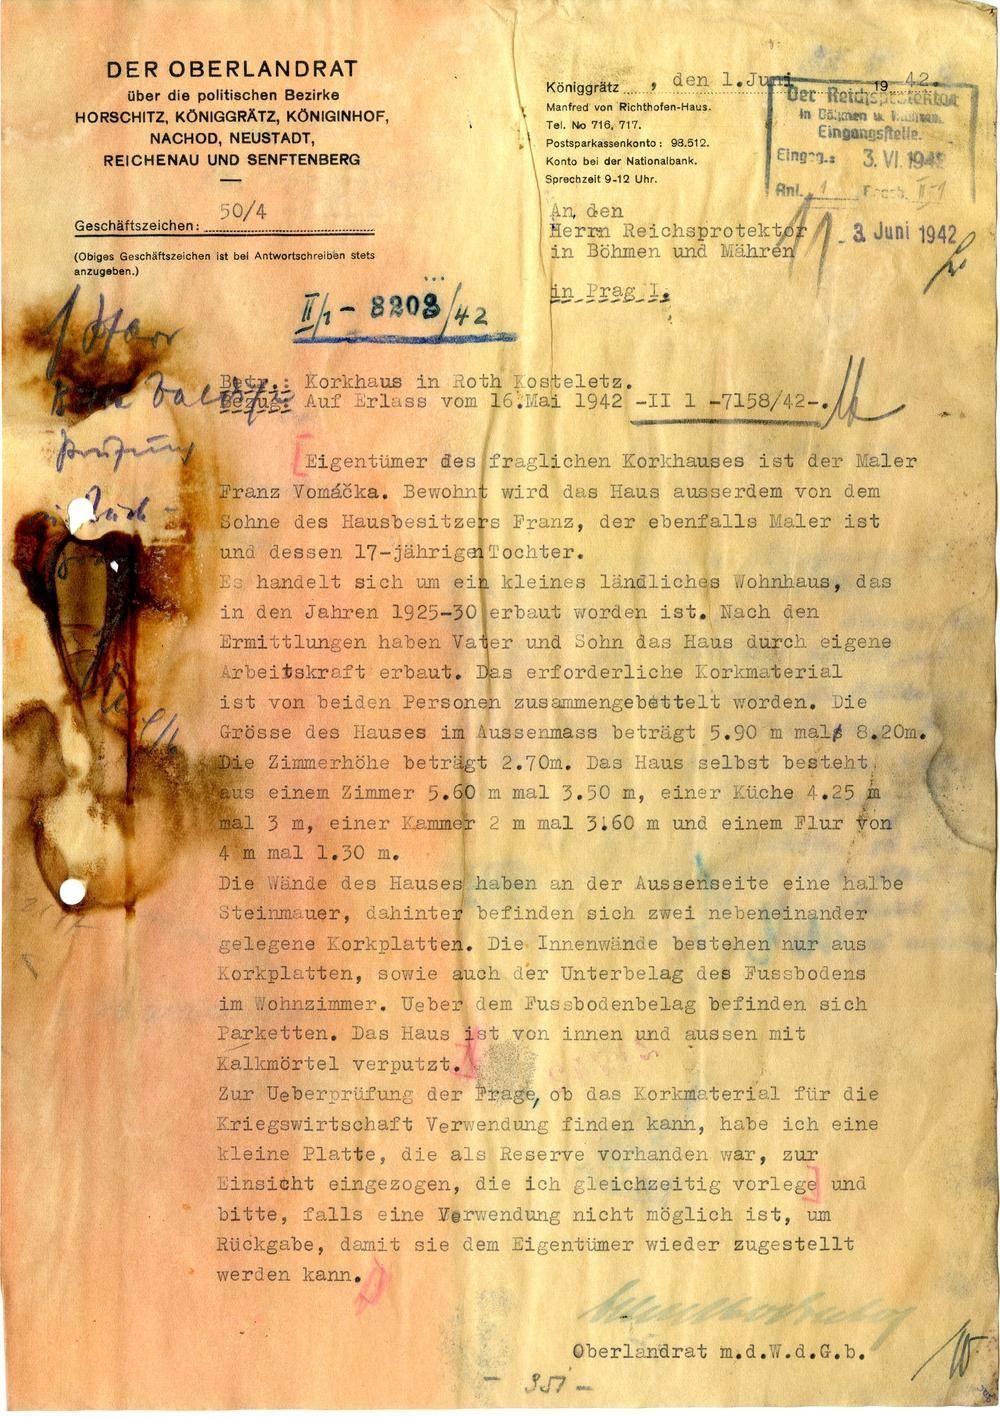 DER OBERLANDRAT
über die politischen Bezirke
HORSCHITZ, KÖNIGGRÄTZ, KÖNIGINHOF,
NACHOD, NEUSTADT,
REICHENAU UND SENFTENBERG
Geschäftszeichen: 50/4
(Obiges Geschäftszeichen ist bei Antwortschreiben stets
anzugeben.)
Königgrätz, den 1.Juni 1942.
Manfred von Richthofen-Haus.
Tel. No 716, 717.
Postsparkassenkonto: 98.512.
Konto bei der Nationalbank.
Sprechzeit 9-12 Uhr.
Der Reichsprotektor
in Böhmen u. Mähren.
Eingangsstelle.
Eingeg.: 3. VI. 1942
Anl. 1
An den
Herrn Reichsprotektor
in Böhmen und Mähren
in Prag I.
3. Juni 1942
II/1 - 8208/42
Betr.: Korkhaus in Roth Kosteletz.
Bezug: Auf Erlass vom 16.Mai 1942 -II 1 -7158/42-.
Eigentümer des fraglichen Korkhauses ist der Maler
Franz Vomáčka. Bewohnt wird das Haus ausserdem von dem
Sohne des Hausbesitzers Franz, der ebenfalls Maler ist
und dessen 17-jährigen Tochter.
Es handelt sich um ein kleines ländliches Wohnhaus, das
in den Jahren 1925-30 erbaut worden ist. Nach den
Ermittlungen haben Vater und Sohn das Haus durch eigene
Arbeitskraft erbaut. Das erforderliche Korkmaterial
ist von beiden Personen zusammengebettelt worden. Die
Grösse des Hauses im Aussenmass beträgt 5.90 m mal 8.20m.
Die Zimmerhöhe beträgt 2.70m. Das Haus selbst besteht
aus einem Zimmer 5.60 m mal 3.50 m, einer Küche 4.25 m
mal 3 m, einer Kammer 2 m mal 3.60 m und einem Flur von
4 m mal 1.30 m.
Die Wände des Hauses haben an der Aussenseite eine halbe
Steinmauer, dahinter befinden sich zwei nebeneinander
gelegene Korkplatten. Die Innenwände bestehen nur aus
Korkplatten, sowie auch der Unterbelag des Fussbodens
im Wohnzimmer. Ueber dem Fussbodenbelag befinden sich
Parketten. Das Haus ist von innen und aussen mit
Kalkmörtel verputzt.
Zur Ueberprüfung der Frage, ob das Korkmaterial für die
Kriegswirtschaft Verwendung finden kann, habe ich eine
kleine Platte, die als Reserve vorhanden war, zur
Einsicht eingezogen, die ich gleichzeitig vorlege und
bitte, falls eine Verwendung nicht möglich ist, um
Rückgabe, damit sie dem Eigentümer wieder zugestellt
werden kann.
Oberlandrat m.d.W.d.G.b.
- 351 -